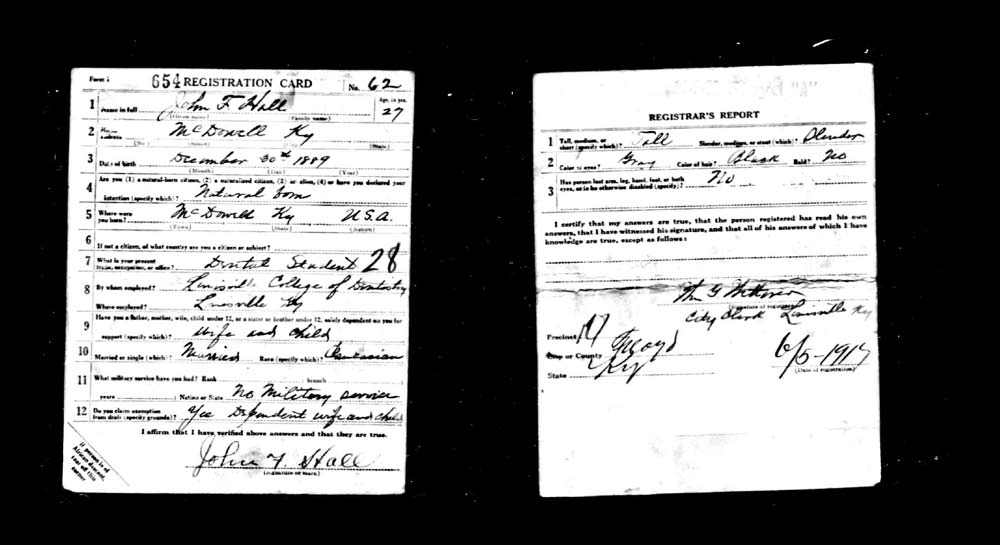 Form 1 654 REGISTRATION CARD No. 62
1 Name in full John F Hall Age, in yrs. 27
(Given name) (Family name)
2 Home address McDowell Ky
(No.) (Street) (City) (State)
3 Date of birth December 30th 1889
(Month) (Day) (Year)
4 Are you (1) a natural-born citizen, (2) a naturalized citizen, (3) an alien, (4) or have you declared your
intention (specify which)? Natural born
5 Where were you born? McDowell Ky U.S.A.
(Town) (State) (Nation)
6 If not a citizen, of what country are you a citizen or subject?
7 What is your present trade, occupation, or office? Dental Student 28
8 By whom employed? Louisville College of Dentistry
Where employed? Louisville Ky
9 Have you a father, mother, wife, child under 12, or a sister or brother under 12, solely dependent on you for
support (specify which)? Wife and Child
10 Married or single (which)? Married Race (specify which)? Caucasian
11 What military service have you had? Rank branch
years ; Nation or State No Military service
12 Do you claim exemption from draft (specify grounds)? Yes Dependent wife and child
I affirm that I have verified above answers and that they are true.
John F. Hall
(Signature or mark)
If person is of
African descent,
tear off this
corner
REGISTRAR'S REPORT
1 Tall, medium, or short (specify which)? Tall Slender, medium, or stout (which)? Slender
2 Color of eyes? Gray Color of hair? Black Bald? No
3 Has person lost arm, leg, hand, foot, or both
eyes, or is he otherwise disabled (specify)? No
I certify that my answers are true, that the person registered has read his own
answers, that I have witnessed his signature, and that all of his answers of which I have
knowledge are true, except as follows:
Wm G
(Signature of registrar)
City Clerk Louisville Ky
Precinct 17
City or County Floyd
State Ky
6/5-1917
(Date of registration)